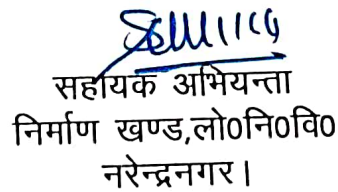 सहायक अभियन्ता
निर्माण खण्ड,लो0नि0वि0
नरेन्द्रनगर।